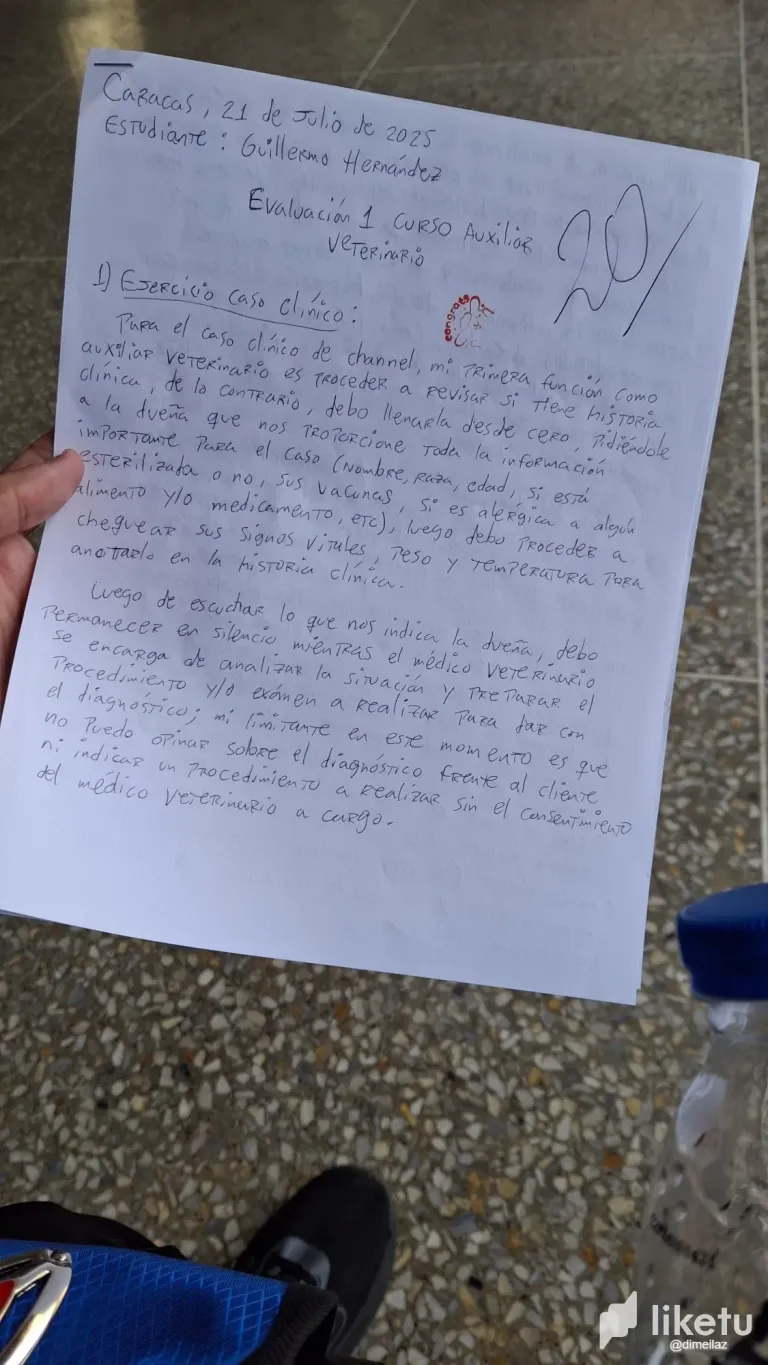 Caracas, 21 de Julio de 2025
Estudiante : Guillermo Hernández
Evaluación 1 Curso Auxiliar
Veterinario
20/
congrats
1) Ejercicio caso clínico :
Para el caso clínico de channel, mi primera función como
auxiliar veterinario es proceder a revisar si tiene historia
clínica, de lo contrario, debo llenarla desde cero, pidiéndole
a la dueña que nos proporcione toda la información
importante para el caso (Nombre, raza, edad, si está
esterilizada o no, sus vacunas, si es alérgica a algún
alimento y/o medicamento, etc), luego debo proceder a
cheguear sus signos vitales, peso y temperatura para
anotarlo en la historia clínica.
Luego de escuchar lo que nos indica la dueña, debo
permanecer en silencio mientras el médico veterinario
se encarga de analizar la situación y preparar el
procedimiento y/o exámen a realizar para dar con
el diagnóstico; mi limitante en este momento es que
no puedo opinar sobre el diagnóstico frente al cliente
ni indicar un procedimiento a realizar sin el consentimiento
del médico veterinario a cargo.
liketu
@dimeilaz